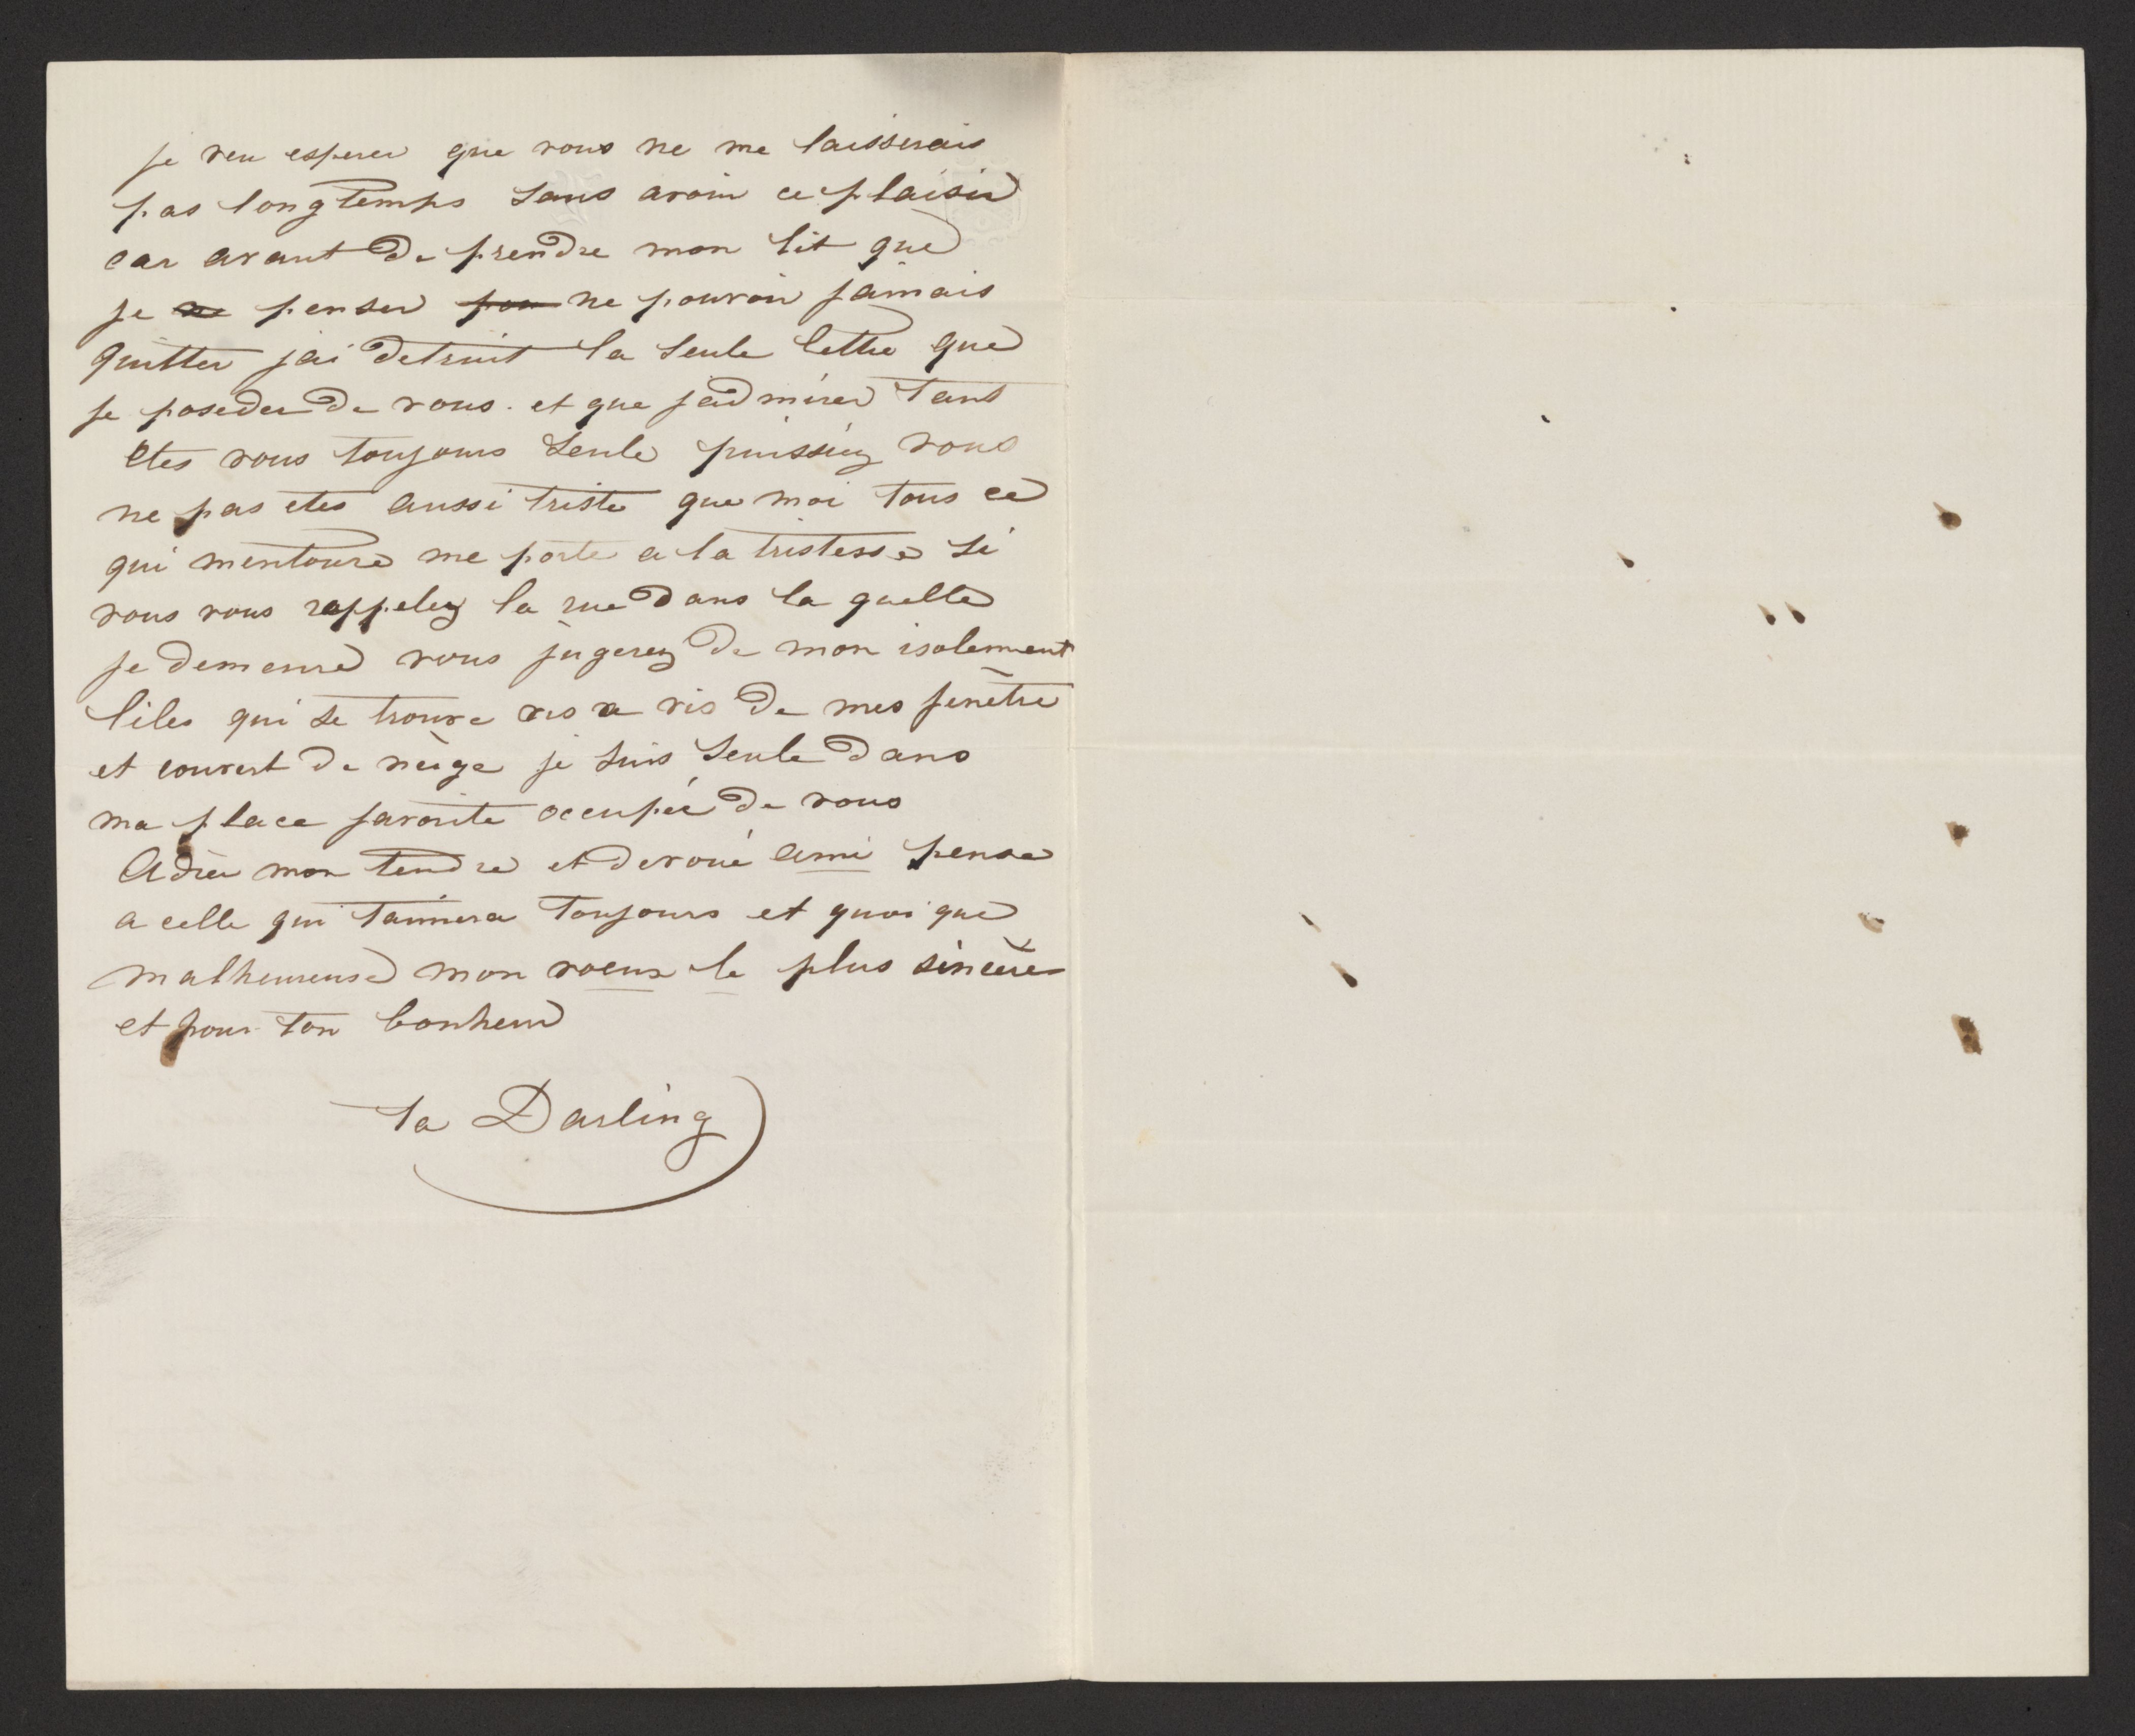 je veu esperer que vous ne me laisserais
pas longtemps sans avoir ce plaisir
car avant de prendre mon lit que
je ne penser pou ne pouvoir jamais
quitter jai detruit la seule lettre que
je poseder de vous. et que jadmirer tant
etes vous toujours seule puissiez vous
ne pas etes aussi triste que moi tous ce
qui mentoure me porte a la tristesse si
vous vous rappelez la rue dans la quelle
je demeure vous jugerez de mon isolement
liles qui se trouve vis a vis de mes fenêtre
et couvert de neige je suis seule dans
ma place favorite occupée de vous
Adieu mon tendre et devoué ami pense
a celle qui taimera toujours et quoi que
malheureuse mon voeux le plus sincère
et pour ton bonheur
ta Darling